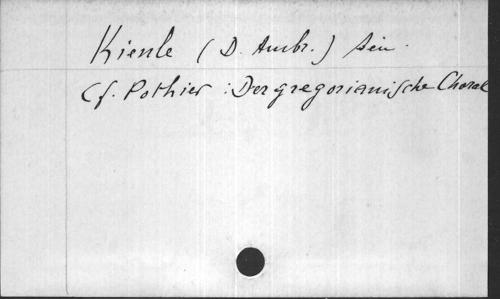 Kienle (D. Ambr.)
Cf. Pothier : Der gregorianische Choral